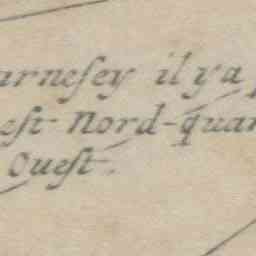 arneſey il y a
eſt Nord-quar
Oueſt.